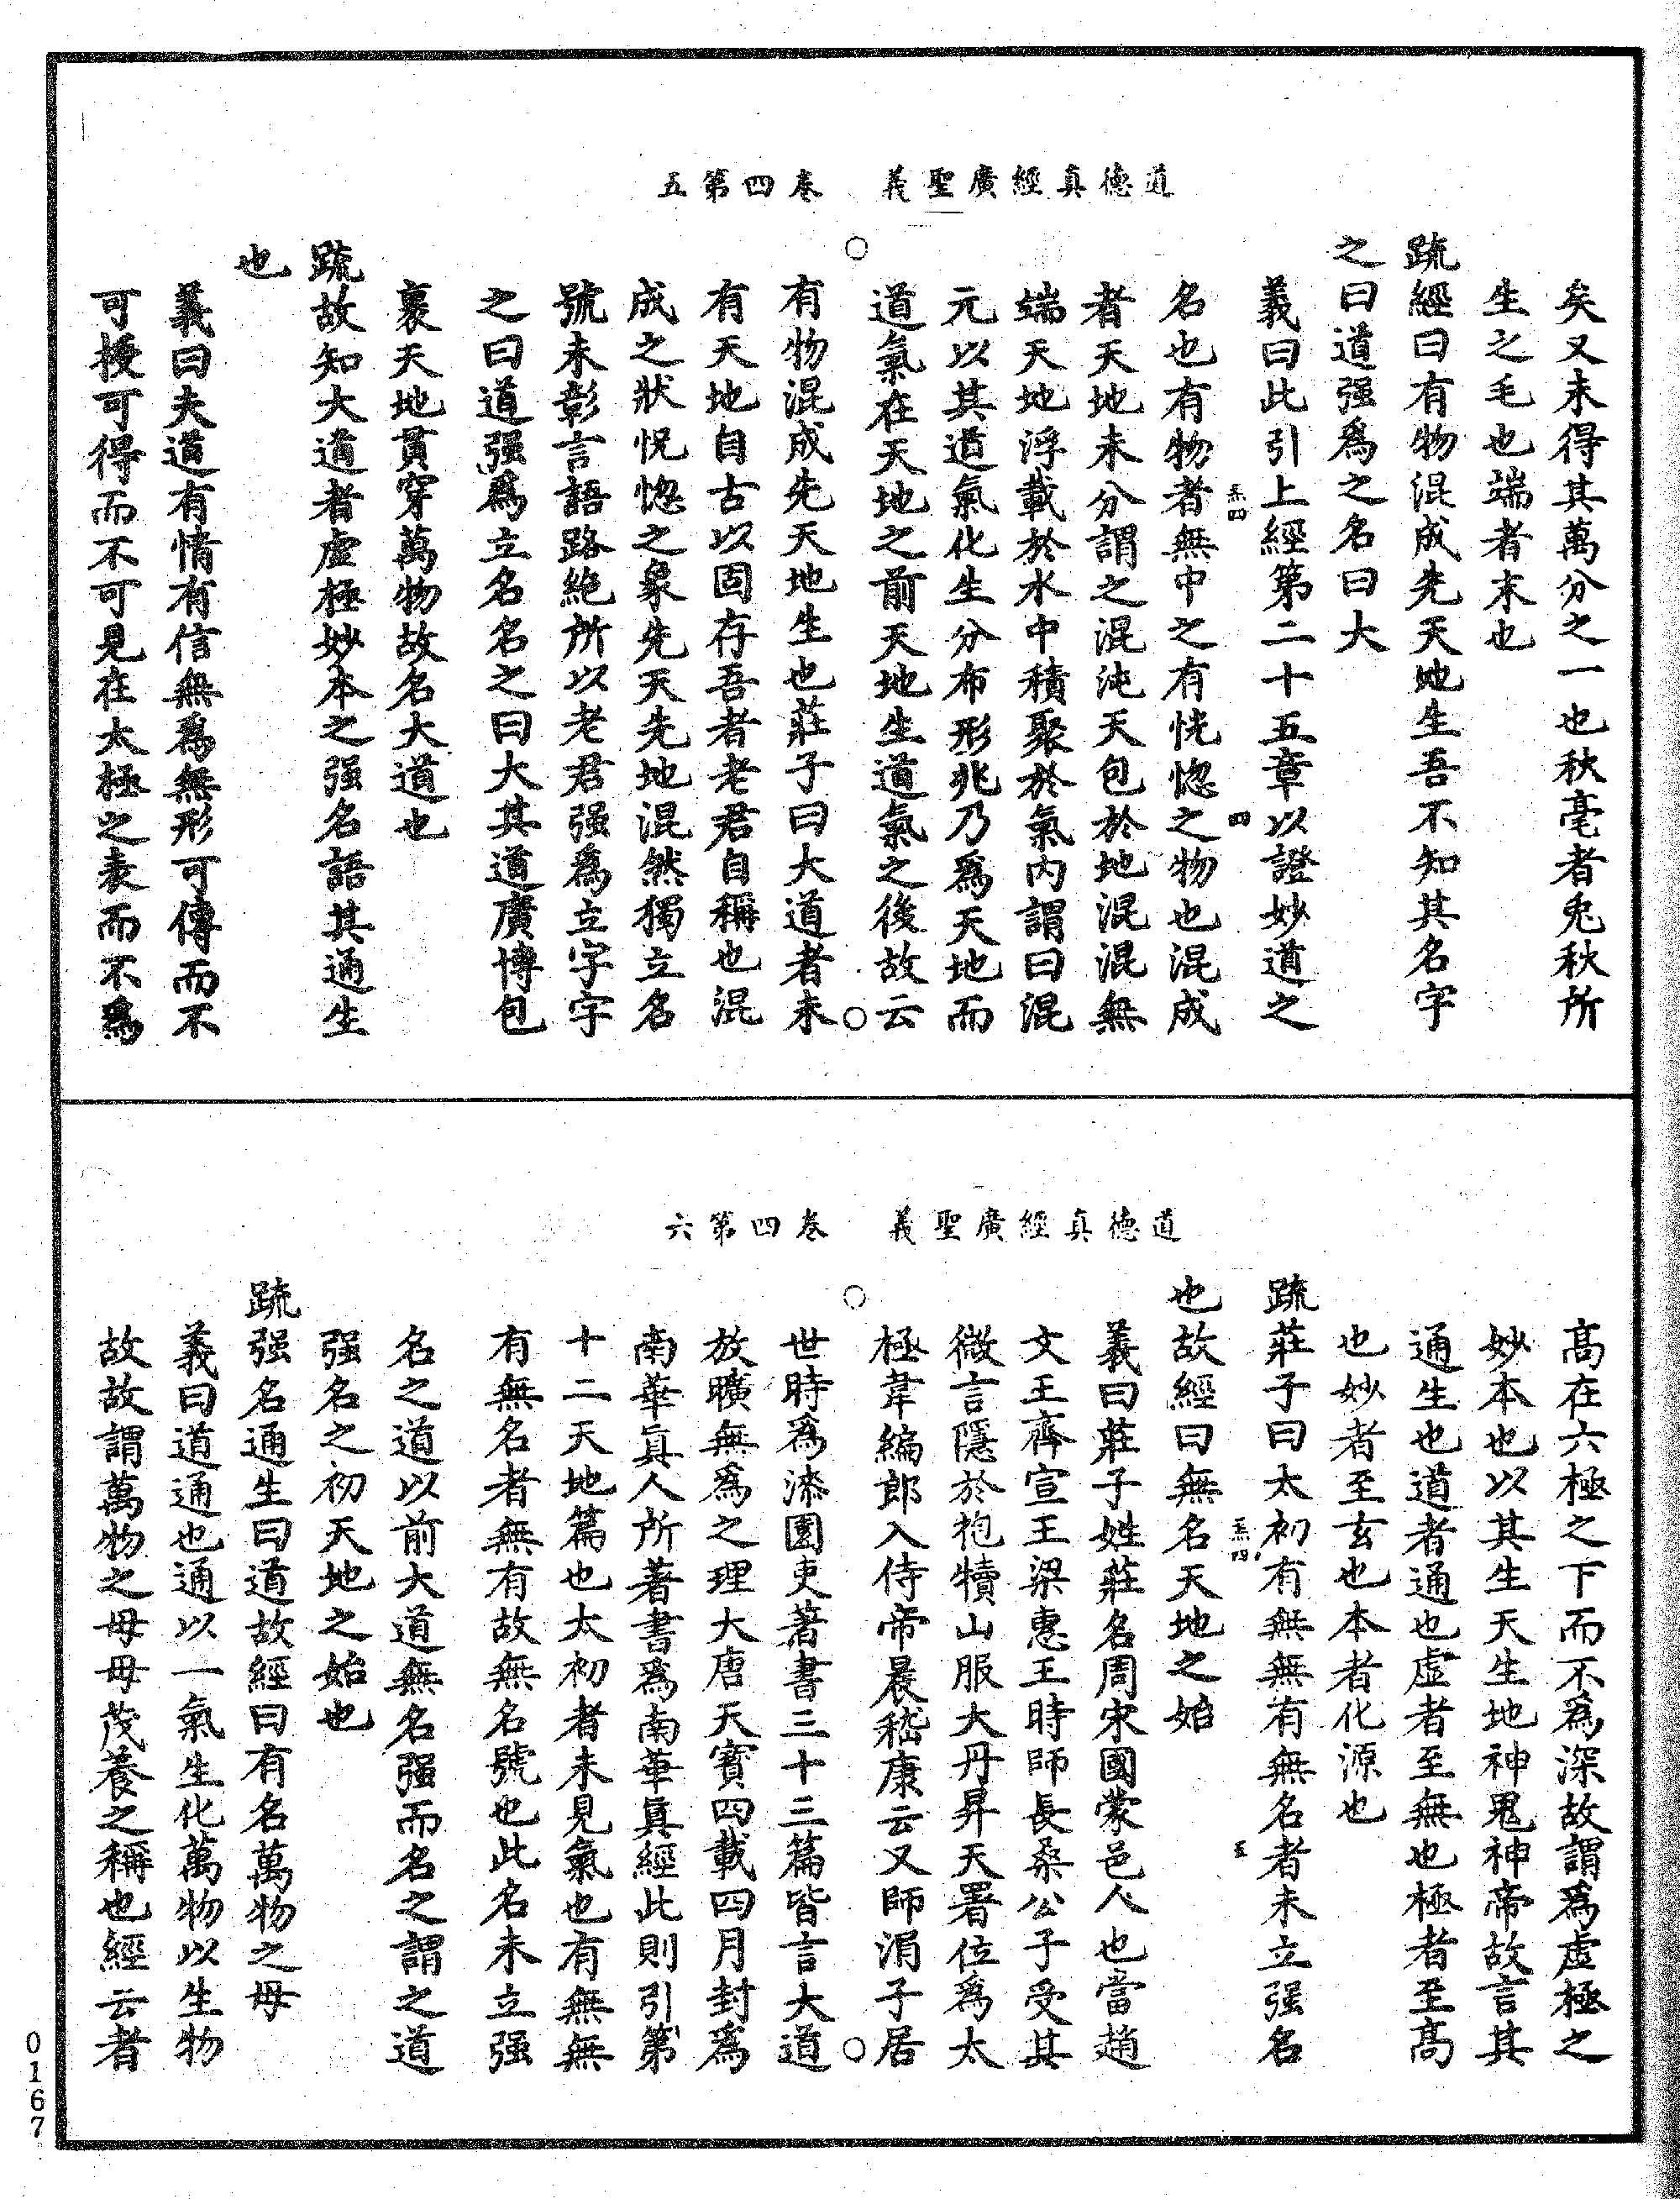 道德真經廣聖義　卷四第五
矣又未得其萬分之一也秋毫者兎秋所
生之毛也端者末也
疏經曰有物混成先天地生吾不知其名字
之曰道强爲之名曰大
義曰此引上經第二十五章以證妙道之
四
名也有物者無中之有恍惚之物也混成
者天地未分謂之混沌天包於地混混無
端天地浮載於水中積聚於氣內謂曰混
元以其道氣化生分布形兆乃爲天地而
道氣在天地之前天地生道氣之後故云
有物混成先天地生也莊子曰大道者未
有天地自古以固存吾者老君自稱也混
成之狀怳惚之象先天先地混然獨立名
號未彰言語路絶所以老君强爲立字字
之曰道强爲立名名之曰大其道廣博包
裹天地貫穿萬物故名大道也
疏故知大道者虛極妙本之强名語其通生
也
義曰夫道有情有信無爲無形可傳而不
可授可得而不可見在太極之表而不爲
道德真經廣聖義　卷四第六
高在六極之下而不爲深故謂爲虛極之
妙本也以其生天生地神鬼神帝故言其
通生也道者通也虛者至無也極者至高
也妙者至玄也本者化源也
疏莊子曰太初有無無有無名者未立强名
五
也故經曰無名天地之始
義曰莊子姓莊名周宋國蒙邑人也當趙
文王齊宣王梁惠王時師長桑公子受其
微言隱於抱犢山服大丹昇天署位爲太
極韋編郎入侍帝晨嵇康云又師涓子居
世時爲漆園吏著書三十三篇皆言大道
放曠無爲之理大唐天寶四載四月封爲
南華眞人所著書爲南華眞經此則引第
十二天地篇也太初者未見氣也有無無
有無名者無有故無名號也此名未立强
名之道以前大道無名强而名之謂之道
强名之初天地之始也
疏强名通生曰道故經曰有名萬物之母
義曰道通也通以一氣生化萬物以生物
故故謂萬物之母母茂養之稱也經云者
0167